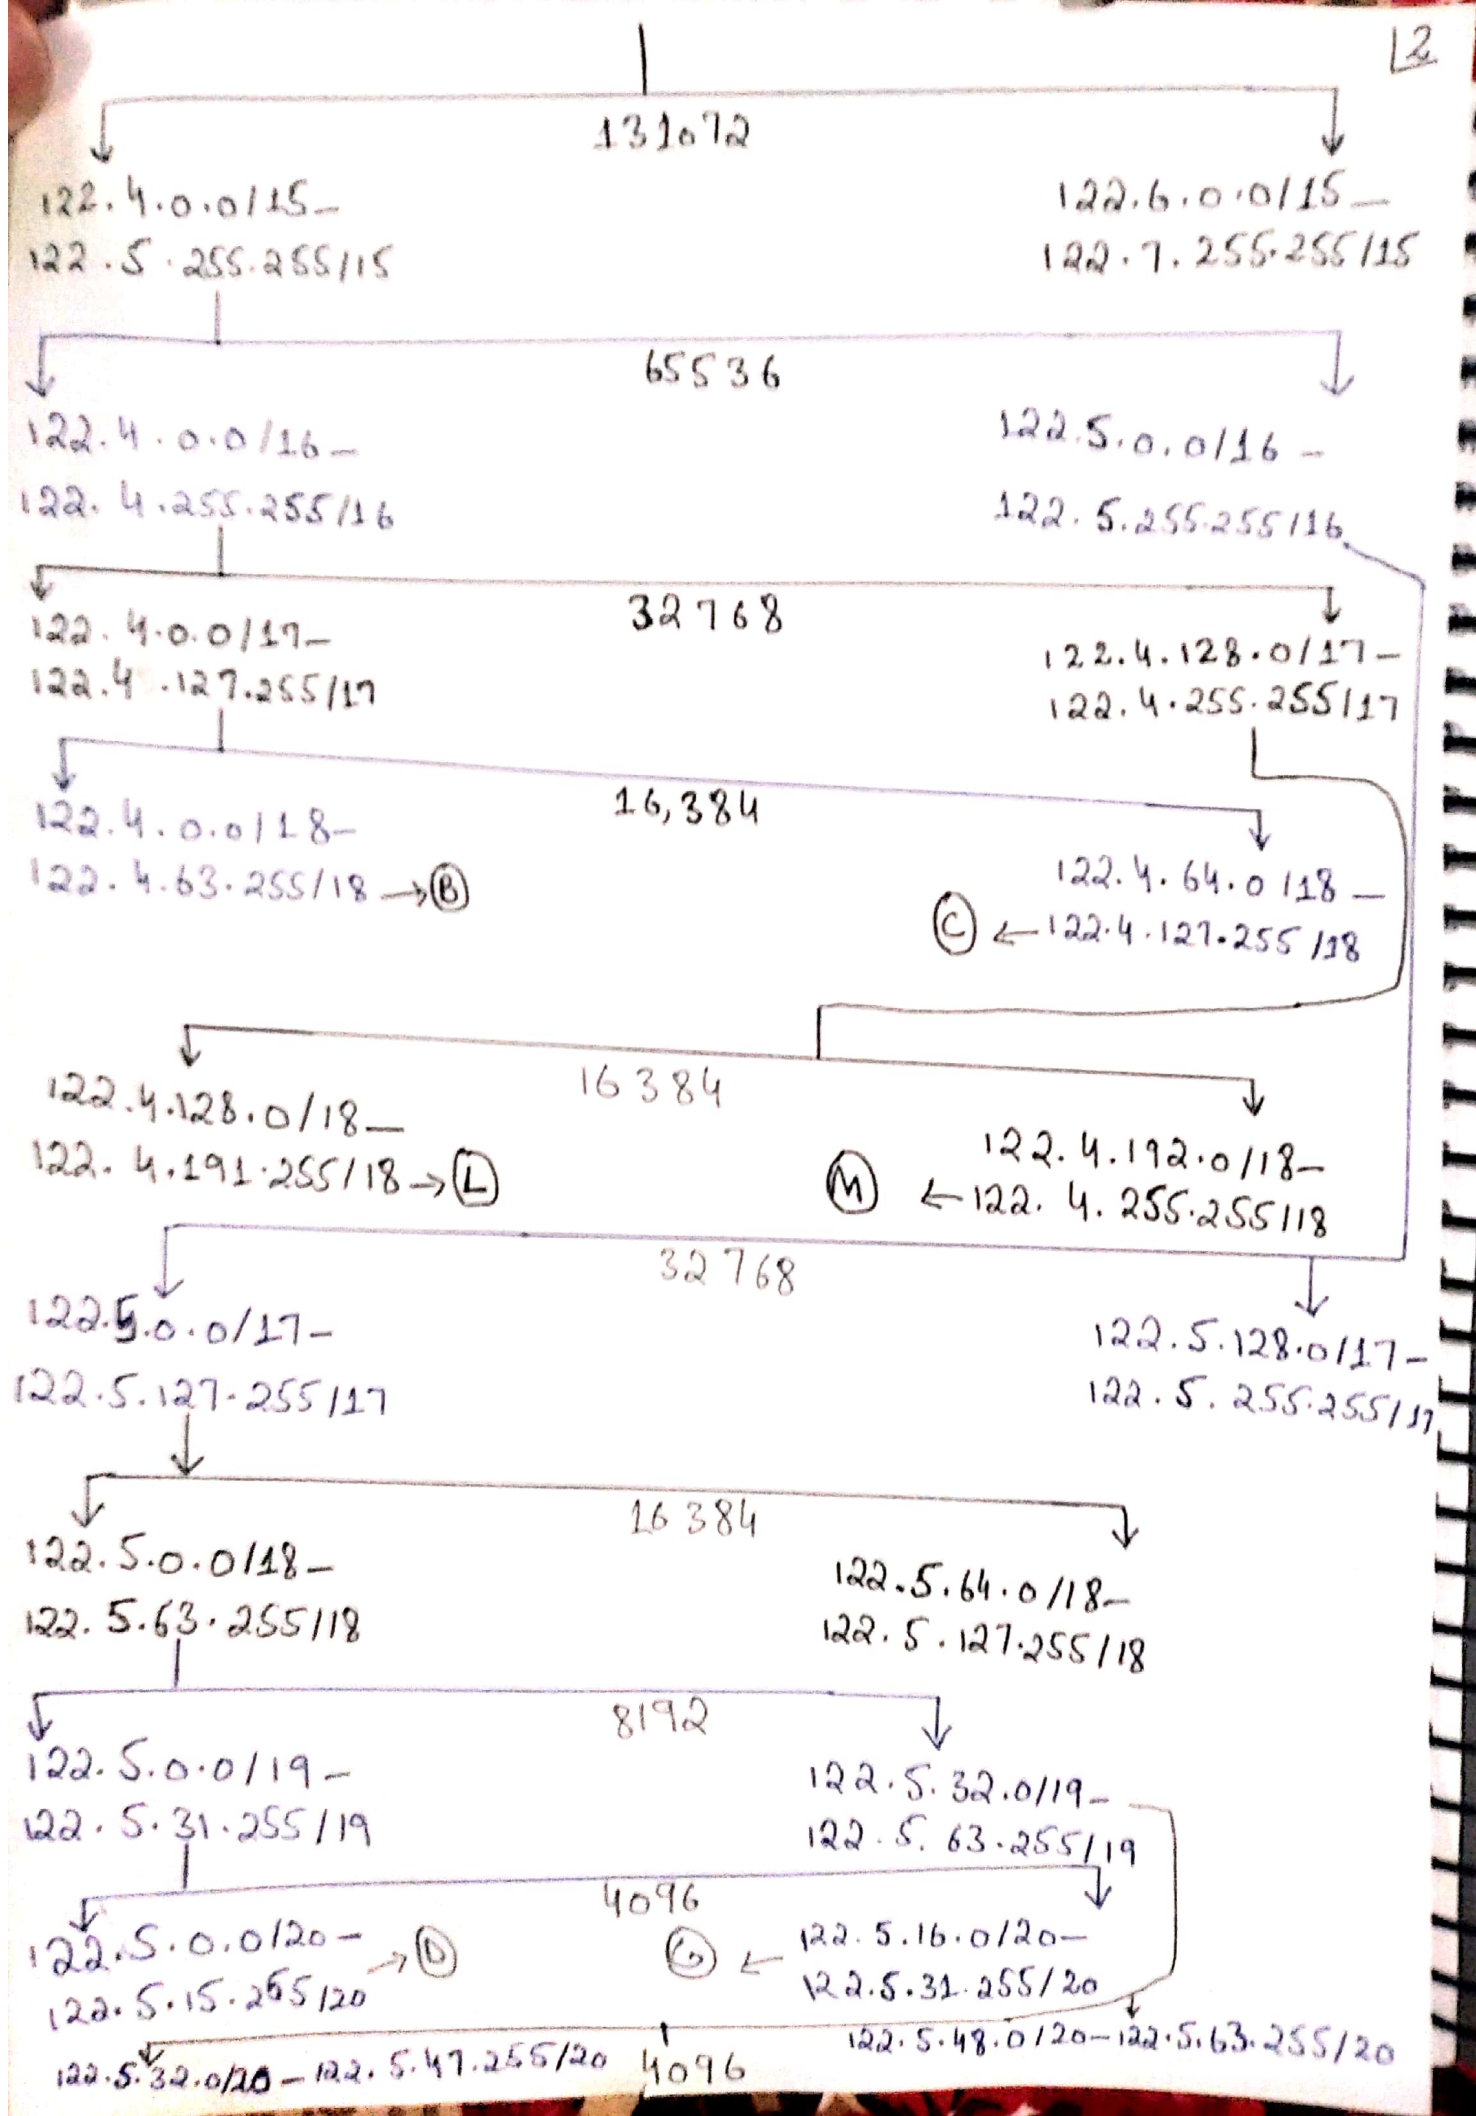 2
131072
122.4.0.0/15-
122.5.255.255/15
122.6.0.0/15-
122.7.255.255/15
65536
122.4.0.0/16-
122.4.255.255/16
122.5.0.0/16-
122.5.255.255/16
32768
122.4.0.0/17-
122.4.127.255/17
122.4.128.0/17-
122.4.255.255/17
16,384
122.4.0.0/18-
122.4.63.255/18 → B
122.4.64.0/18-
C ← 122.4.127.255/18
16384
122.4.128.0/18-
122.4.191.255/18 → L
122.4.192.0/18-
M ← 122.4.255.255/18
32768
122.5.0.0/17-
122.5.127.255/17
122.5.128.0/17-
122.5.255.255/17
16384
122.5.0.0/18-
122.5.63.255/18
122.5.64.0/18-
122.5.127.255/18
8192
122.5.0.0/19-
122.5.31.255/19
122.5.32.0/19-
122.5.63.255/19
4096
122.5.0.0/20- → D
122.5.15.255/20
G ← 122.5.16.0/20-
122.5.31.255/20
122.5.32.0/20-122.5.47.255/20
4096
122.5.48.0/20-122.5.63.255/20